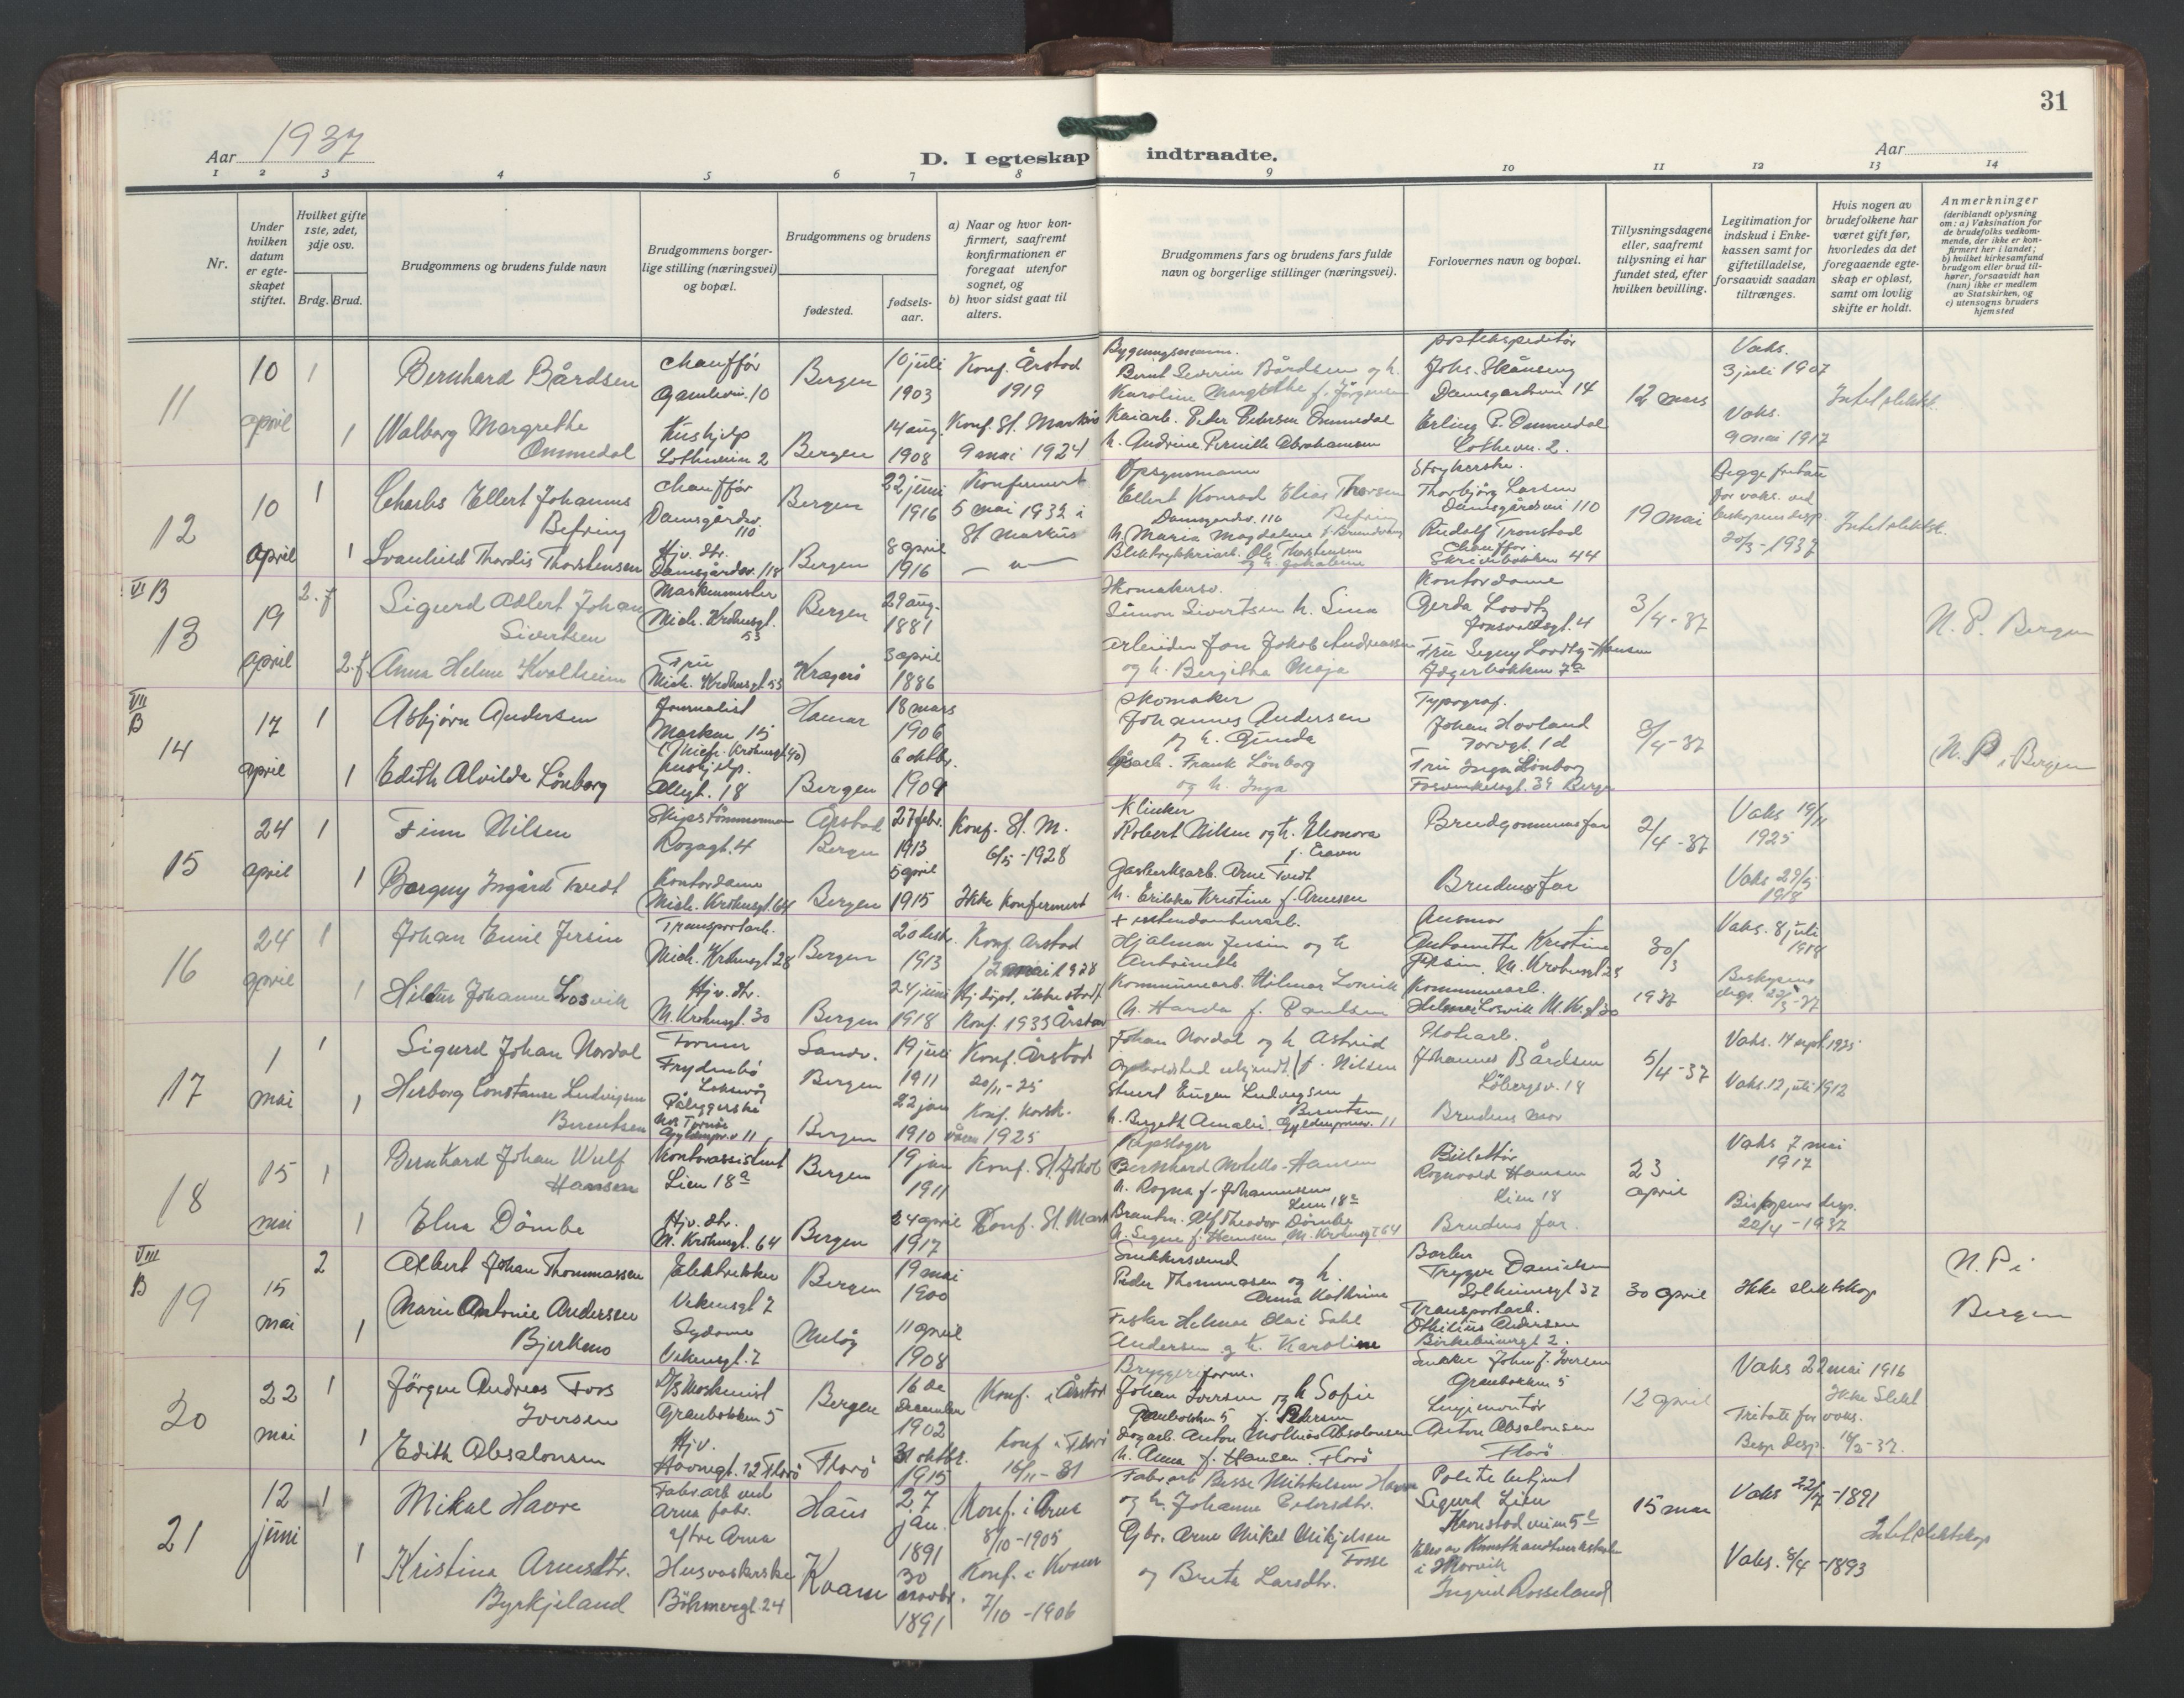 31
Aar 1937
D. I egteskap indtraadte.
Aar
1 2 3 4 5 6 7 8 9 10 11 12 13 14
Nr.
Under hvilken datum er egteskapet stiftet.
Hvilket gifte 1ste, 2det, 3dje osv.
Brdg. Brud.
Brudgommens og brudens fulde navn
Brudgommens borgerlige stilling (næringsvei) og bopæl.
Brudgommens og brudens
fødested.
fødselsaar.
a) Naar og hvor konfirmert, saafremt konfirmationen er foregaat utenfor sognet, og
b) hvor sidst gaat til alters.
Brudgommens fars og brudens fars fulde navn og borgerlige stillinger (næringsvei).
Forlovernes navn og bopæl.
Tillysningsdagene eller, saafremt tillysning ei har fundet sted, efter hvilken bevilling.
Legitimation for indskud i Enkekassen samt for giftetilladelse, forsaavidt saadan tiltrænges.
Hvis nogen av brudefolkene har været gift før, hvorledes da det foregaaende egteskap er opløst, samt om lovlig skifte er holdt.
Anmerkninger
(deriblandt oplysning om: a) Vaksination for de brudefolks vedkommende, der ikke er konfirmert her i landet; b) hvilket kirkesamfund brudgom eller brud tilhører, forsaavidt han (hun) ikke er medlem av Statskirken, og c) utensogns bruders hjemsted
11
10 april
1
Bernhard Bårdsen
Chauffør
Gamlevei. 10
Bergen
10 juli 1903
Konf. Årstad 1919
Bernt Severin Bårdsen og h.
Karoline Margrethe f. Jørgensen
postekspeditør
Johs. Skånseng
Damsgardsvei 14
12 mars
Vaks. 3 juli 1907
1
Walborg Margrethe Ommedal
Hushjelp
Lotheveien 2
Bergen
14 aug. 1908
Konf. St. Markus 9 mai 1924
Kaiarb. Peder Pedersen Ommedal
h. Andrine Pernille Abrahamsen
Erling P. Ommedal
Lothevei. 2.
Vaks. 9 mai 1917
12
10 april
1
Charles Ellert Johannes Befring
Chauffør
Damsgårdsv. 110
Bergen
22 juni 1916
Konfirmert 5 mai 1932 i St Markus
Opsynsmann
Ellert Konrad Elias Thorsen Befring
Damsgardsv. 110
h. Maria Magdalene
Strykerske.
Thorbjørg Larsen
Damsgårdsvei 110
19 mai
Begge fritatt for vaks. ved biskopens disp. 20/3-1937
1
Svanhild Thordis Thorstensen
Hjv. dtr.
Damsgårdsv. 118
Bergen
8 april 1916
— " —
Ole Thorstensen
Rudolf Tronstad
Chauffør
Skrivebakken 44
VI B
13
19 april
2. f
Sigurd Adlert Johan Sivertsen
Maskinmester
Mich. Krohnsgt. 53
Bergen
29 aug. 1881
Skomakersv.
Simon Sivertsen h. Sina
Kontordame
Gerda Loodtz
3/4-37
N. P. Bergen
2. f.
Anna Helene Kvalheim
Fru
Mich. Krohnsgt 53
Kragerø
3 april 1886
Arbeider Jon Jakob Andreassen
og h. Bergitha Maja
Fru Signy Loodtz-Hansen
VII B
14
17 april
1
Asbjørn Andersen
Journalist
Marken 15
(Mich. Krohnsgt 40)
Hamar
18 mars 1906
Skomaker
Johannes Andersen
og h. Gunda
Typograf.
Johan Hovland
Torvgt. 1d
8/4-37
N. P. i Bergen
1
Edith Alvilde Lönborg
Hushjelp.
Allegt. 18
Bergen
6 oktbr. 1909
Frank Lönborg
og h. Inga
Fru Inga Lönborg
15
24 april
1
Finn Nilsen
Skipstømmermann
Rozagt. 4
Årstad Bergen
27 febr. 1913
Konf. St. M. 6/5-1928
Klinker
Robert Nilsen og h. Eleonora
Brudgommens far
2/4-37
Vaks 19/11 1925
1
Borgny Ingård Tvedt
Kontordame
Mich. Krohnsgt. 64
Bergen
5 april 1915
Ikke konfirmert
Gassverksarb. Arne Tvedt
h. Erikka Kristine f. Arnesen
Brudens far
Vaks 29/5 1918
16
24 april
1
Johan Emil Jersin
Transportarb.
Mich. Krohnsgt 28
Bergen
1913
Konf. Årstad 12 mai 1928
Hjalmar Jersin og h
Antoinette
Antoinette Kristine
Jersin. M. Krohnsgt 28
30/3
1937
Vaks. 8 juli 1914
1
Hildur Johanne Losvik
Hjv. dtr.
M. Krohnsgt. 30
Bergen
24 juni 1918
Konf. 1933 Årstad
Kommunearb. Hilmar Losvik
h. Handa f. Paulsen
Kommunearb.
Hilmar Losvik M. K. gt 30
Biskopens disp. 23/3-37
17
1 mai
1
Sigurd Johan Nordal
Former
Frydenbø
Laksevåg
Sandv. Bergen
19 juli 1911
Konf. Årstad 20/11-25
Johan Nordal og h Astrid
f. Nilsen
Johannes Bårdsen
Löbergsv. 18
5/4-37
Vaks. 14 sept. 1925
1
Herborg Constanse Ludvigsen Berentsen
Påleggerske
Gyldenprv. 11
Bergen
22 jan 1910
Konf. Korsk. våren 1925
Stuert Eugen Ludvigsen Berentsen
h. Bergeth Amalie. Gyldenprisv. 11
Brudens mor
Vaks. 12 juli 1912
18
15 mai
1
Bernhard Johan Wulf Hansen
Kontorassistent
Lien 18a
Bergen
19 jan 1911
Konf. St. Jakob
Repslager
Bernhard Hansen
h. Ragna f. Johannessen
Lien 18a
Billettør
Ragnvald Hansen
Lien 18
23 april
Vaks 7 mai 1917
1
Elna Dömbe
Hjv. dtr.
M. Krohnsgt. 64
Bergen
24 april 1917
Konf. St. Mark
Brannm. Alf Theodor Dömbe
h. Signe f. Hansen, M. Krohnsgt 64
Brudens far.
Biskopens disp. 20/4-1937
VIII B
19
15 mai
2
Albert Johan Thommassen
Elektriker
Vikensgt 7
Bergen
19 mai 1900
Snekkersvend
Peder Thommasen og h.
Anna Kathrine
Barber
Trygve Danielsen
Solheimsgt 37
30 april
Ikke slektskap
N. P. i Bergen
1
Marie Antonie Andersen Bjerkmo
Sydame
Vikensgt. 7
11 april 1908
Fisker Helmer
Andersen og h. Karoline
Transportarb.
Othilius Andersen
Birkebeinergt 2.
20
22 mai
1
Jörgen Andreas Fors Iversen
Graubakken 5
Bergen
16 de Decembr 1902
Konf. i Årstad
Bryggeriform.
Johan Iversen og h Sofie
Graubakken 5 f. Petersen
Snekker John J. Iversen
Graubakken 5
12 april
Vaks 22 mai 1916
Ikke Slekt
1
Edith Absalonsen
Hjv.
Havnegt. 12 Florø
Florø
31 oktbr. 1915
Konf. i Florø 16/11-31
Anton Mathias Absalonsen
h. Anna f. Hansen. Florø
Linjemontør
Anton Absalonsen
Florø
Fritatt for vaks.
Bisp. disp. 16/3-37.
21
12 juni
1
Mikal Havre
Fabr. arb ved
Arna fabr.
Ytre Arna
Haus
27 jan. 1891
Konf. i Arna 8/10-1905
Fabr. arb Basse Mikkelsen Havre
og h. Johanne
Politibetjent
Sigurd Lien
15 mai
Vaks 22/7-1891
Intet slektskap
1
Kristina Arnesdtr. Byrkjeland
Husvaskerske
Böhmergt. 24
Kvam
30 novbr. 1891
Konf. i Kvam 7/10-1906
Gbr. Arne Mikel Mikjelsen Fosse
og Brita Larsdtr.
Ingrid Rosseland
Vaks. 8/4-1893